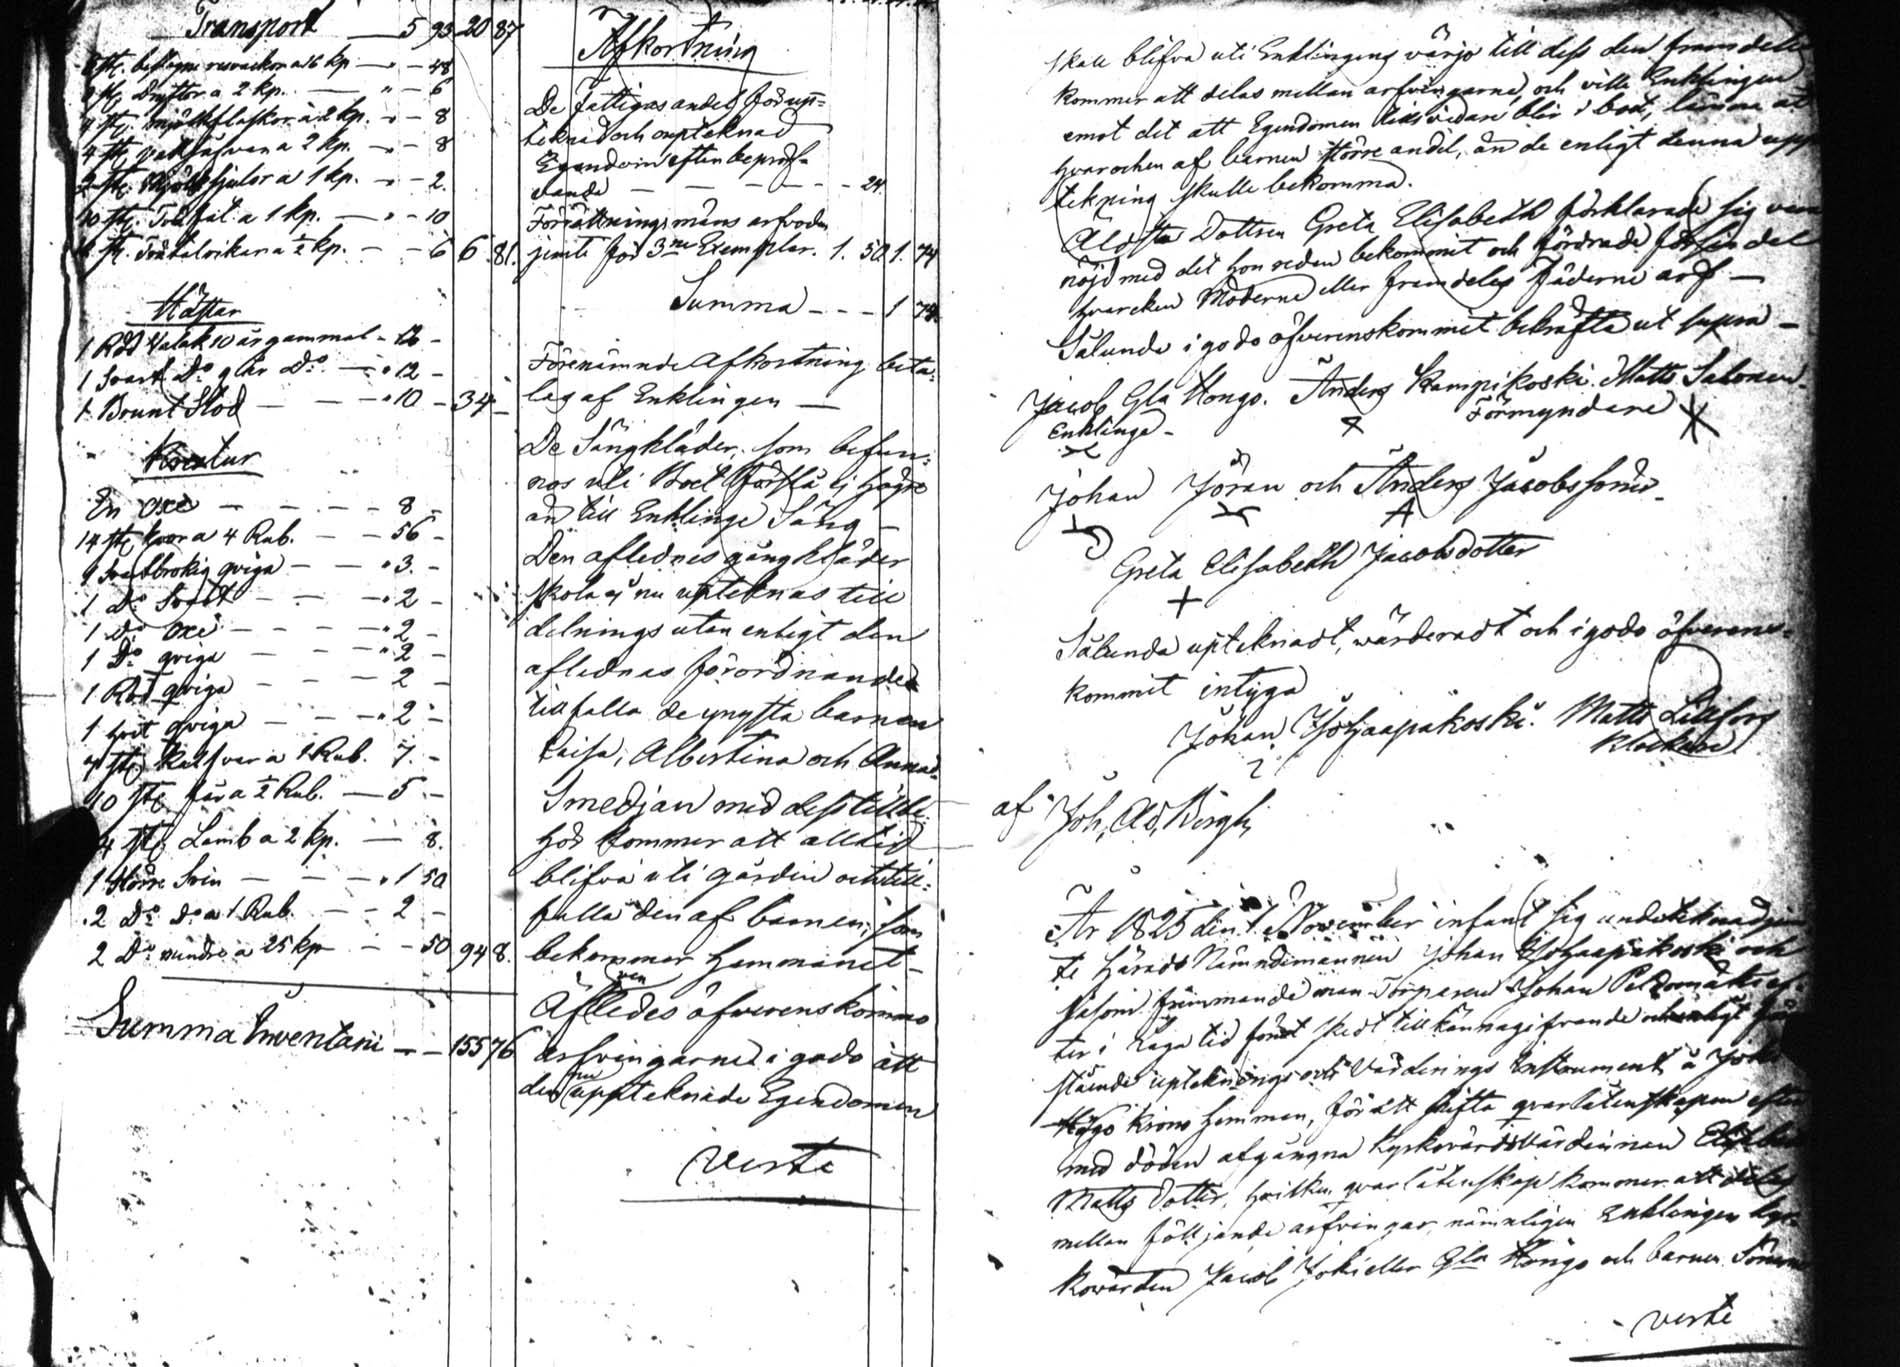 Transport — 5 93 20 87
6 st. beslagne a 16 kp — " — 48
3 st. a 2 kp. — " — 6
4 st. mjölkflaskor à 2 kp. — " — 8
4 st. a 2 kp. — " — 8
2 st. Mjölk a 1 kp. — " — 2.
10 st. fat a 1 kp. — " — 10
12 st. Trätalrikar a ½ kp. — — 6 6 81.
Hästar
1 Röd Valak 10 år gammal - 12 -
1 Svart Do 9 år Do — " 12 -
1 Brunt Stod — — — " 10 — 34 —
Kreatur
En oxe — — — — 8 -
14 st. koor a 4 Rub. — — 56 -
1 Svartbrokig qviga — — " 3. -
1 Do Svart — — — " 2 -
1 Do Oxe — — — — " 2 -
1 Do qviga — — — " 2 -
1 Röd qviga — — — 2 -
1 hvit qviga — — — " 2 -
7 st. kalfvar a 1 Rub. 7. -
10 st. får a ½ Rub. — 5 -
4 st. Lamb a 2 kp. — 8.
1 större Svin — — — " 1 50
2 Do Do a 1 Rub. — — 2 -
2 Do mindre a 25 kp — — 50 94 8.
Summa Inventarii — — 155 76
Afkortning
De fattigas andel för upp=
teknad och oupteknad
Egendom efter bepröf=
vande — — — — — — 24
Förrättnings mäns arfvode
jemte för 3ne Exemplar. 1. 50 1. 74
Summa - - - 1 74.
Förenämnde Afkortning beta=
las af Enklingen —
De Sängkläder, som befun=
nos uti Boet förslå ej högre
än till Enklinge Säng —
Den aflednes gångkläder
skola ej nu upteknas till
delnings utan enligt den
aflednas förordnande
tillfalla de yngsta barnen
Caisa, Albertina och Anna.
Smedjan med dess tillbe=
hör kommer att alltid
blifva uti gården och till=
falla den af barnen, som
bekommer hemmanet —
Äfven
ledes öfverenskommo
arfvingarne i godo att
den nu uppteknade Egendomen
verte
skall blifva uti Enklingens värjo till dess den framdeles
kommer att delas mellan arfvingarne, och ville Enklingen
emot det att Egendomen tills vidare blir i boet, lämna åt
hvar och en af barnen större andel, än de enligt denna upp
tekning skulle bekomma.
Äldsta Dottren Greta Elisabeth förklarade sig vara
nöjd med det hon redan bekommit och fordrade för sin del
hvarcken Möderne eller framdeles Fäderne arf —
Sålunda i godo öfverenskommit bekräfta ut supra —
Jacob Gla Hongo. Anders Kampikoski. Matts Salonen.
Enklinge — Förmyndare
Johan Jöran och Anders Jacobssöner.
Greta Elisabeth Jacobsdotter
Sålunda upteknadt, värderadt och i godo öfverens=
kommit intyga
Johan Yohaapakoski. Matts Lillfors
Klockare
af Joh. Ad. Bergh,
År 1825 den 1 November infant sig undertecknad jem
te Härads Nämndemannen Johan Yohaapakoski och
såsom främmande man Torparen Johan Peldomäki ef=
ter i laga tid förut skedt tillkännagifvande och enligt före
stående uptecknings och Värderings Instrument å Joki
Hongo Krono hemman, för att skifta qvarlåtenskapen efter
med döden afgångna Kyrkovärds Värdinnan Elisabeth
Matts Dotter, hvilken qvarlåtenskap kommer att delas
mellan följande arfvingar, nämnligen Enklingen kyr=
kovärden Jacob Joki eller Gla Hongo och barnen Sönerne
verte